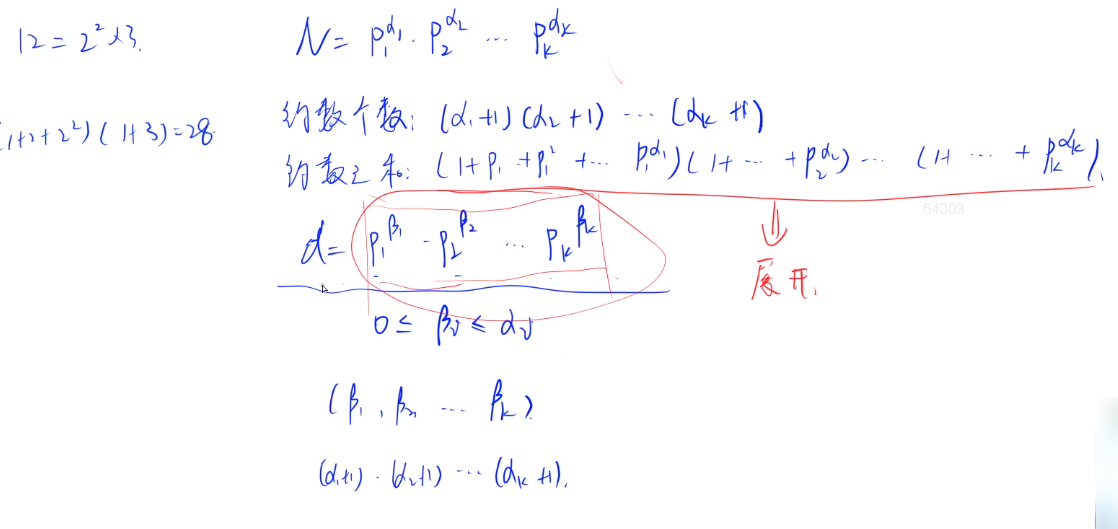 12 = 2²×3.
N = p₁^α₁ · p₂^α₂ ··· pₖ^αₖ
约数个数: (α₁+1)(α₂+1) ··· (αₖ+1)
(1+2+2²)(1+3)=28
约数之和: (1+p₁+p₁²+··· p₁^α₁)(1+···+p₂^α₂)··· (1+ ··· + pₖ^αₖ).
64303
d = p₁^β₁ · p₂^β₂ ··· pₖ^βₖ
展开.
0 ≤ βᵢ ≤ αᵢ
(β₁, β₂ ··· βₖ)
(α₁+1)·(α₂+1) ··· (αₖ+1).